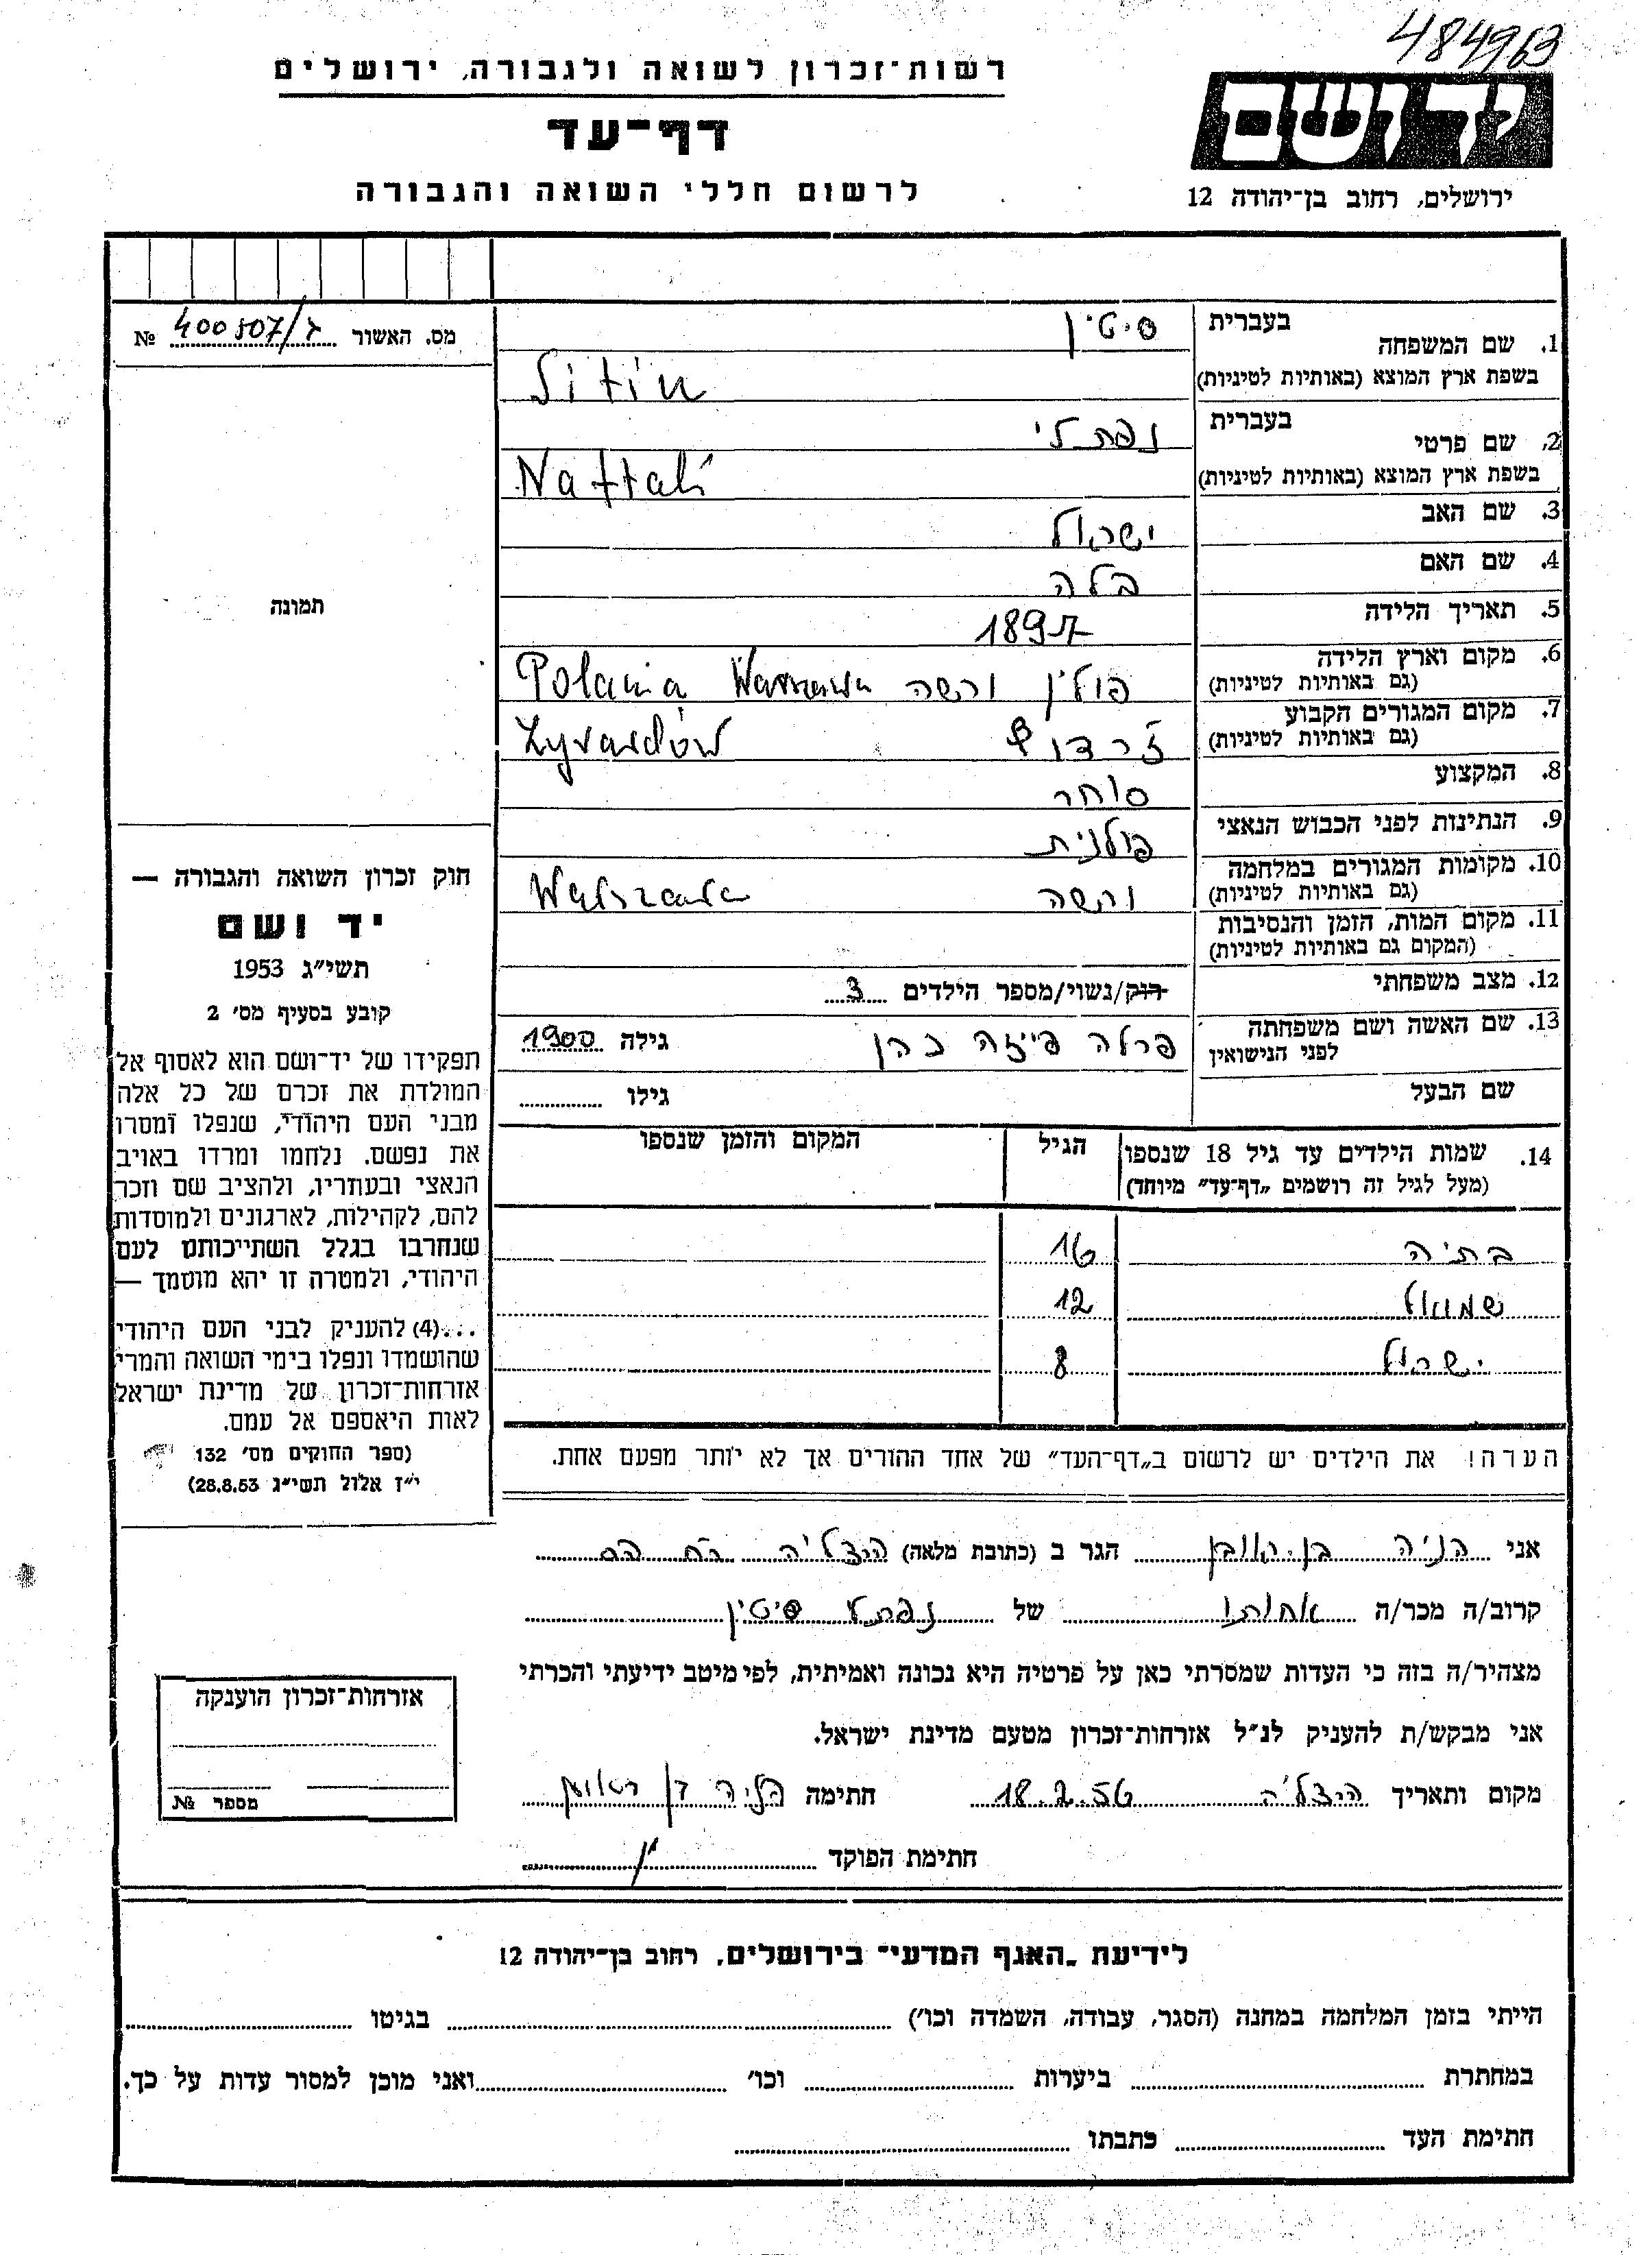 484963
רשות־זכרון לשואה ולגבורה, ירושלים
דף־עד
לרשום חללי השואה והגבורה
יד ושם
ירושלים, רחוב בן־יהודה 12
מס. האשור 400507/ № ג
תמונה
1. שם המשפחה בעברית סיטין
בשפת ארץ המוצא (באותיות לטיניות) Sitin
2. שם פרטי בעברית נפתלי
בשפת ארץ המוצא (באותיות לטיניות) Naftali
3. שם האב ישראל
4. שם האם בלה
5. תאריך הלידה 1897
6. מקום וארץ הלידה (גם באותיות לטיניות) פולין ורשה Polania Warszawa
7. מקום המגורים הקבוע (גם באותיות לטיניות) Zyrardów
8. המקצוע סוחר
9. הנתינות לפני הכבוש הנאצי פולנית
10. מקומות המגורים במלחמה (גם באותיות לטיניות) ורשה Warszawa
11. מקום המות, הזמן והנסיבות (המקום גם באותיות לטיניות)
12. מצב משפחתי רוק/נשוי/מספר הילדים 3
13. שם האשה ושם משפחתה לפני הנישואין פרלה פייזה כהן גילה 1900
שם הבעל גילו
14. שמות הילדים עד גיל 18 שנספו הגיל המקום והזמן שנספו
(מעל לגיל זה רושמים „דף־עד” מיוחד)
בתיה 16
שמואל 12
ישראל 8
הערה! את הילדים יש לרשום ב„דף־העד” של אחד ההורים אך לא יותר מפעם אחת.
חוק זכרון השואה והגבורה —
יד ושם
תשי״ג 1953
קובע בסעיף מס׳ 2
תפקידו של יד־ושם הוא לאסוף אל
המולדת את זכרם של כל אלה
מבני העם היהודי, שנפלו ומסרו
את נפשם, נלחמו ומרדו באויב
הנאצי ובעוזריו, ולהציב שם וזכר
להם, לקהילות, לארגונים ולמוסדות
שנחרבו בגלל השתייכותם לעם
היהודי, ולמטרה זו יהא מוסמך —
...(4) להעניק לבני העם היהודי
שהושמדו ונפלו בימי השואה והמרי
אזרחות־זכרון של מדינת ישראל
לאות היאספם אל עמם.
(ספר החוקים מס׳ 132
י״ז אלול תשי״ג 28.8.53)
אני הניה בן ראובן הגר ב (כתובת מלאה) הרצליה
קרוב/ה מכר/ה אחותו של נפתלי סיטין
מצהיר/ה בזה כי העדות שמסרתי כאן על פרטיה היא נכונה ואמיתית, לפי מיטב ידיעתי והכרתי
אני מבקש/ת להעניק לנ״ל אזרחות־זכרון מטעם מדינת ישראל.
מקום ותאריך הרצליה 18.2.56 חתימה הניה בן ראובן
חתימת הפוקד
אזרחות־זכרון הוענקה
מספר №
לידיעת „האגף המדעי” בירושלים, רחוב בן־יהודה 12
הייתי בזמן המלחמה במחנה (הסגר, עבודה, השמדה וכו׳) בגיטו
במחתרת ביערות וכו׳ ואני מוכן למסור עדות על כך.
חתימת העד כתבתו